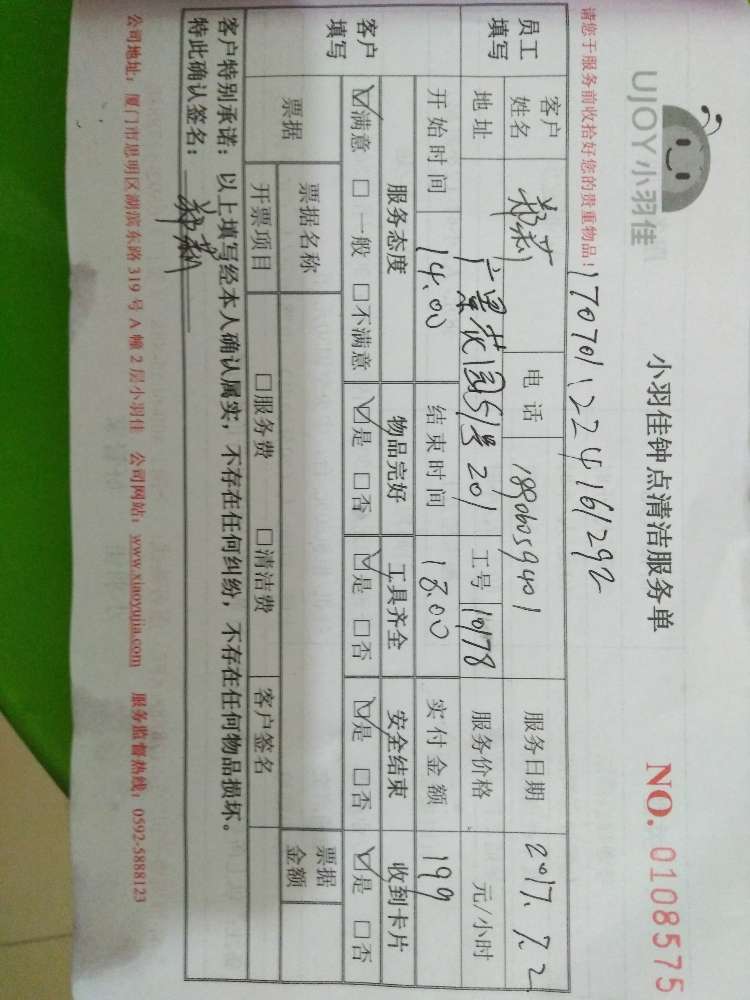 UJOY小羽佳
小羽佳钟点清洁服务单
NO. 0108575
请您于服务前收拾好您的贵重物品！
170701224161292
员工填写
客户姓名
电话
服务日期 2017.7.2
地址
51号201
工号 10178
服务价格 元/小时
开始时间 14.00 结束时间 18.00 实付金额 199
客户填写
服务态度 物品完好 工具齐全 安全结束 收到卡片
☑满意 □一般 □不满意 ☑是 □否 ☑是 □否 ☑是 □否 ☑是 □否
票据
票据名称 票据金额
开票项目 □服务费 □清洁费 客户签名
客户特别承诺：以上填写经本人确认属实，不存在任何纠纷，不存在任何物品损坏。
特此确认签名：
公司地址：厦门市思明区湖滨东路 319 号 A 幢 2 层小羽佳 公司网站：www.xiaoyujia.com 服务监督热线：0592-5888123